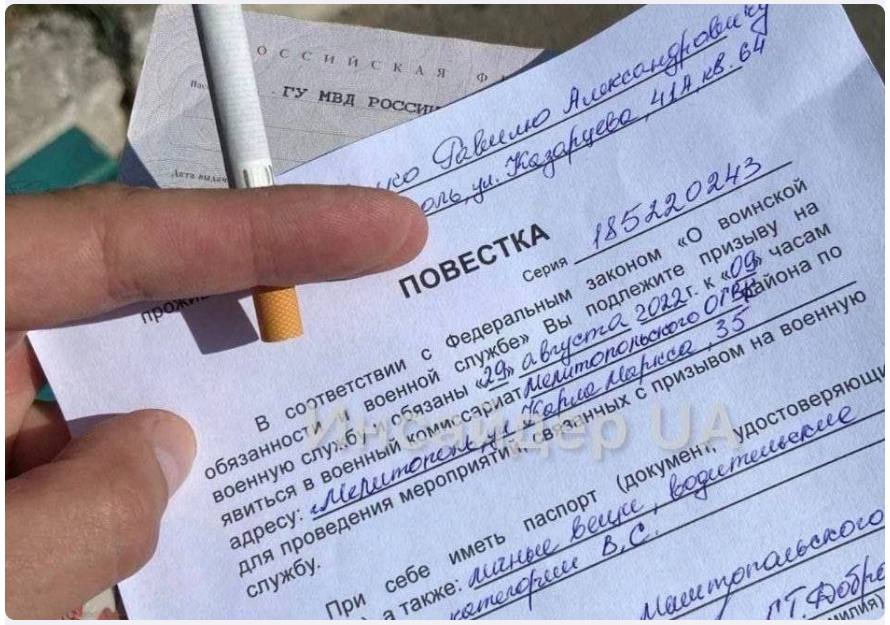 РОССИЙСКАЯ Ф
ГУ МВД РОССИИ
Дата выдачи
ко Равилю Александровичу
оль, ул. Казарцева, 41А, кв. 64
прожив
ПОВЕСТКА
Серия 185220243
В соответствии с Федеральным законом «О воинской
обязанности и военной службе» Вы подлежите призыву на
военную службу и обязаны «29» августа 2022 г. к «09» часам
явиться в военный комиссариат Мелитопольского ОГВК района по
адресу: г. Мелитополь, ул. Карла Маркса, 35
для проведения мероприятий, связанных с призывом на военную
службу.
При себе иметь паспорт (документ, удостоверяющи
а также: личные вещи, водительские
категории В, С.
Мелитопольского
Г.Т. Добр
милия)
Инсайдер UA